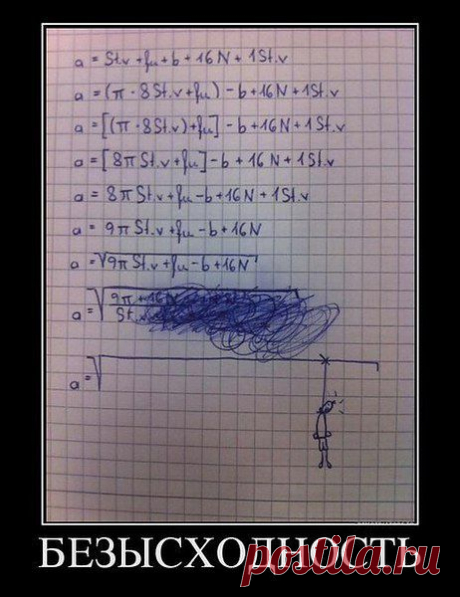 a = St.v + fu + b + 16 N + 1 St.v
a = (π · 8 St.v + fu) - b + 16 N + 1 St.v
a = [(π · 8 St.v) + fu] - b + 16 N + 1 St.v
a = [8 π St.v + fu] - b + 16 N + 1 St.v
a = 8 π St.v + fu - b + 16 N + 1 St.v
a = 9 π St.v + fu - b + 16 N
a = √9 π St.v + fu - b + 16 N
a = √9 π + 16 N
St.v
a = √
БЕЗЫСХОДНОСТЬ
postila.ru